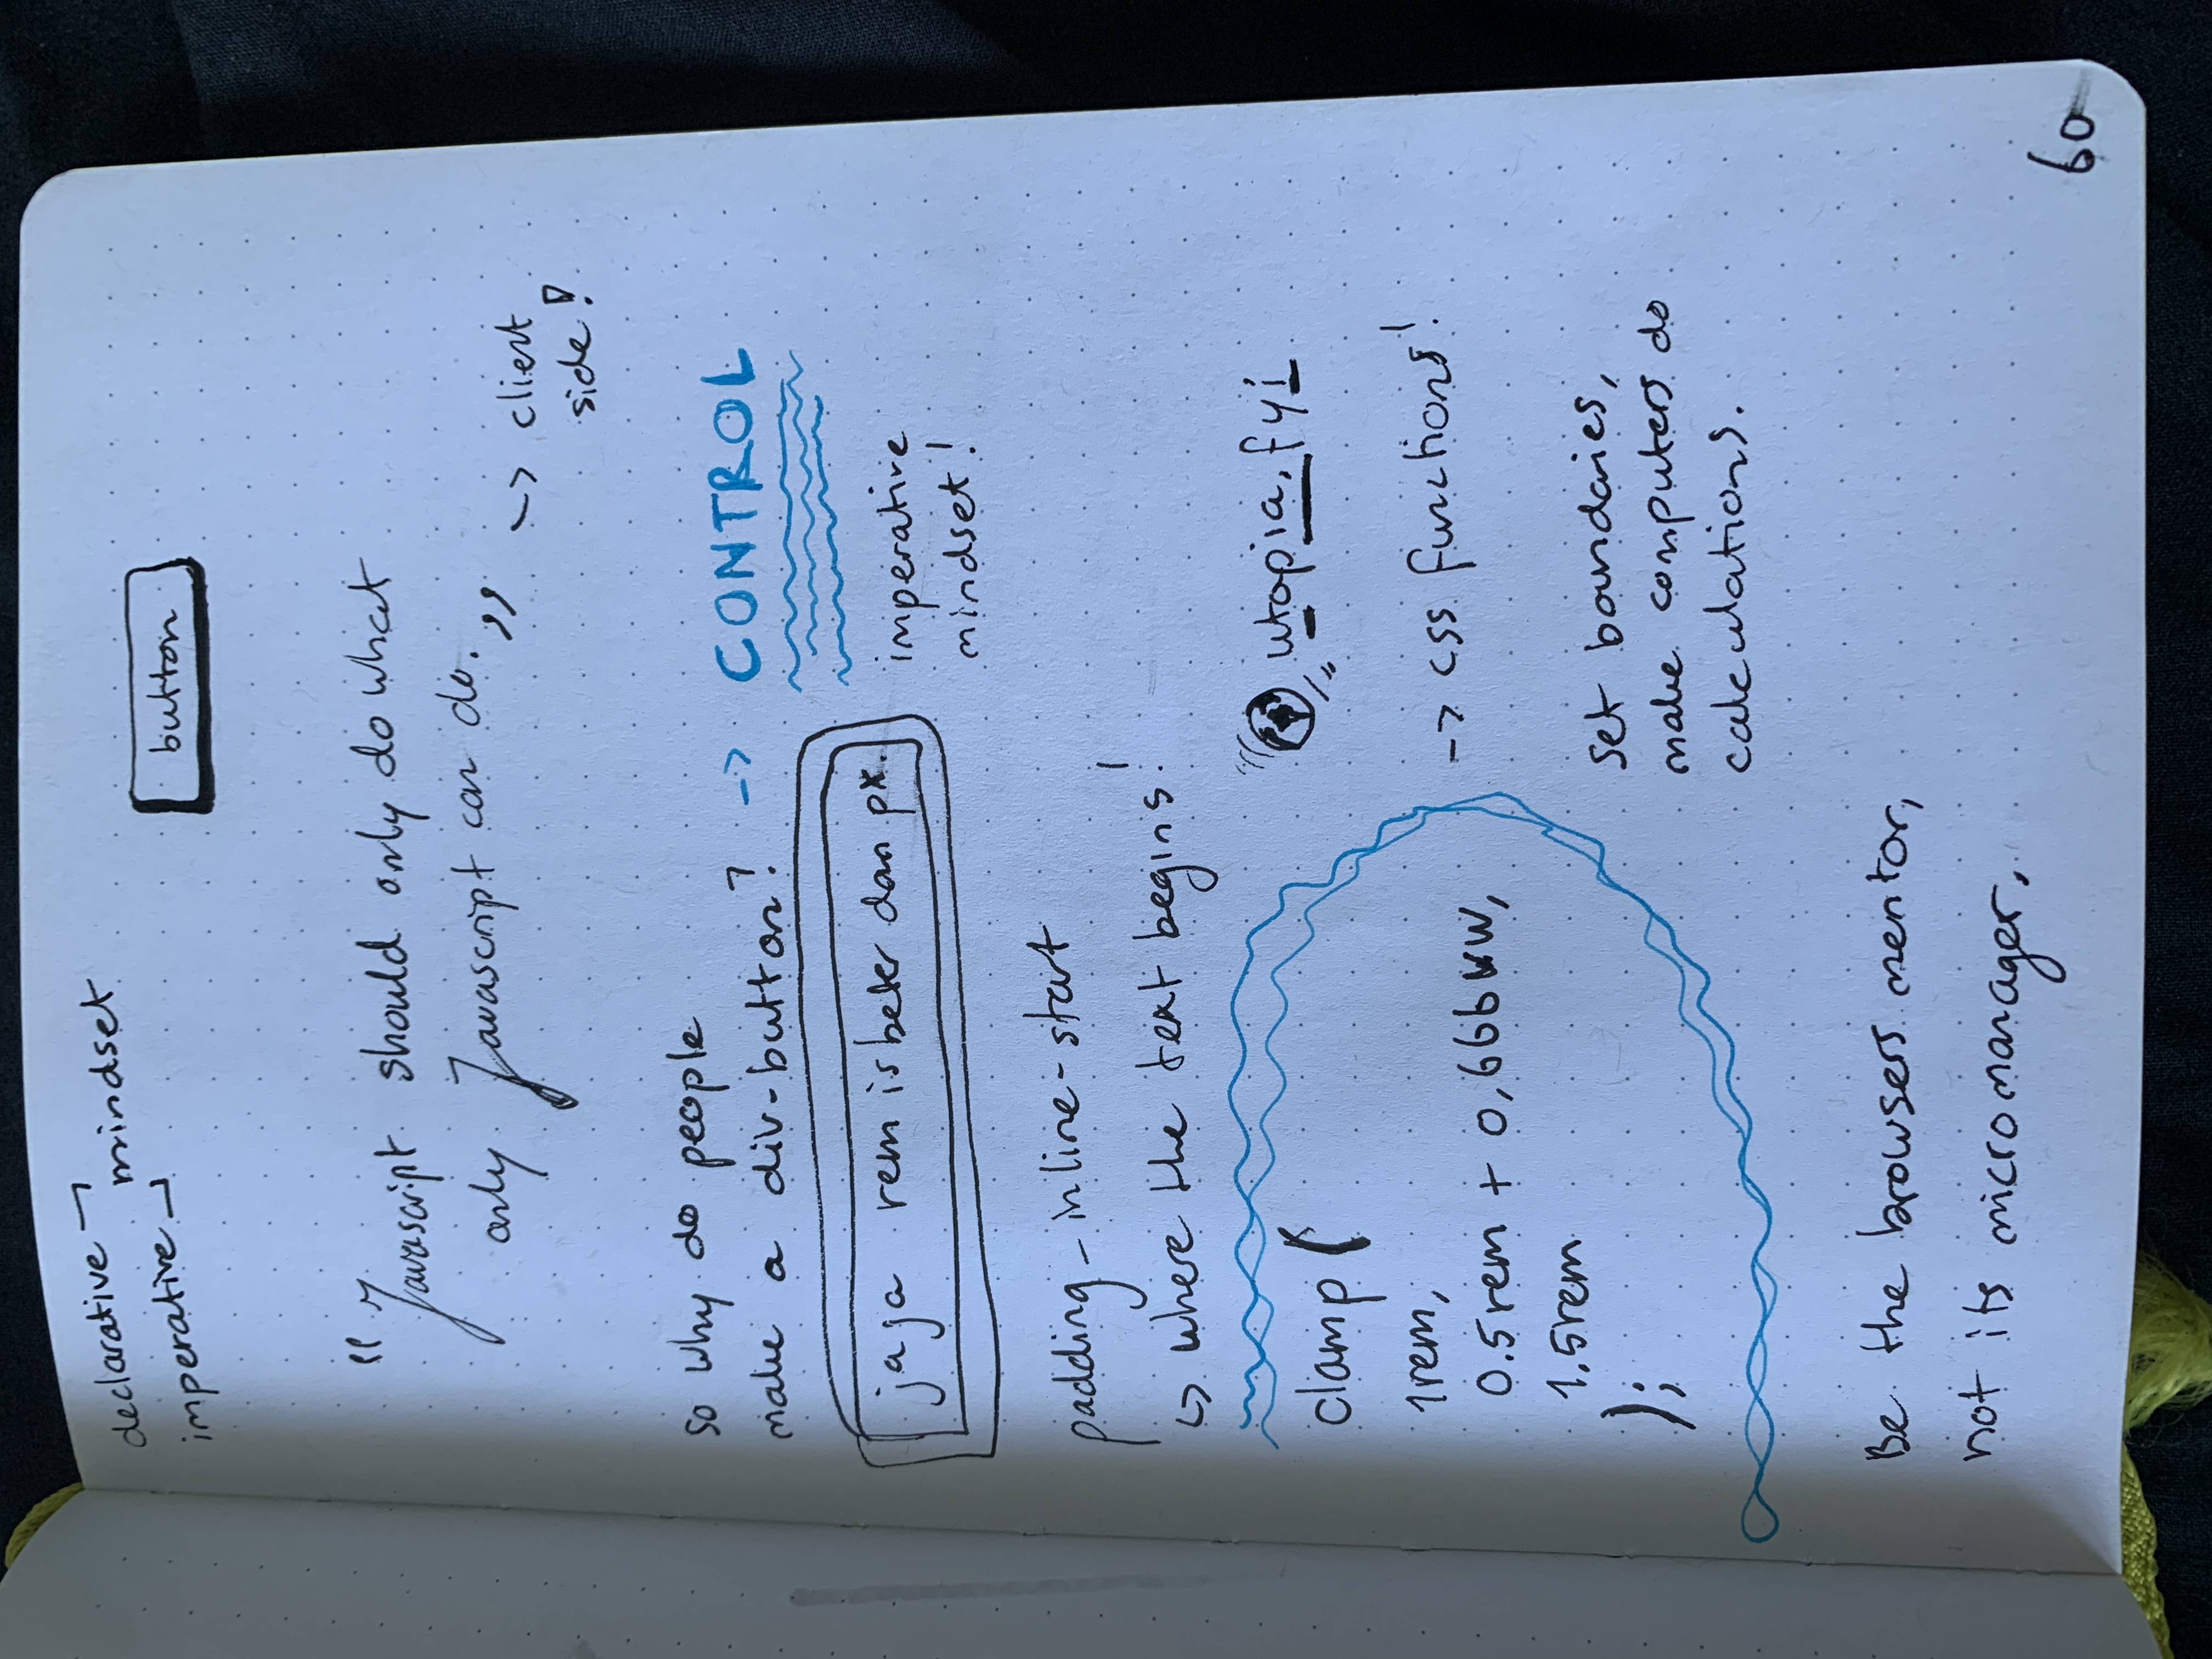 declarative
mindset
imperative
button
" Javascript should only do what
only Javascript can do. "
-> client
side!
so why do people
make a div-button?
-> CONTROL
imperative
mindset!
jaja rem is beter dan px.
padding-inline-start
↳ where the text begins!
utopia.fyi
clamp (
1rem,
0.5rem + 0,666vw,
1.5rem
);
-> css functions!
set boundaries,
make computers do
calculations.
Be the browsers mentor,
not its micromanager.
60